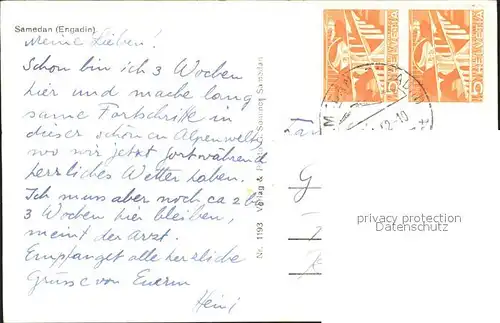 Samedan (Engadin)
Meine Lieben!
Schon bin ich 3 Wochen
hier und mache lang
same Fortschritte in
dieser schönen Alpenwelt,
wo wir jetzt fortwährend
herrliches Wetter haben.
Ich muss aber noch ca 2 bis
3 Wochen hier bleiben,
meint der Arzt.
Empfanget alle herzliche
Grüsse von Euerm
Heini
Nr. 1193 Verlag & Samedan
HELVETIA
HELVETIA
5
5
privacy protection
Datenschutz